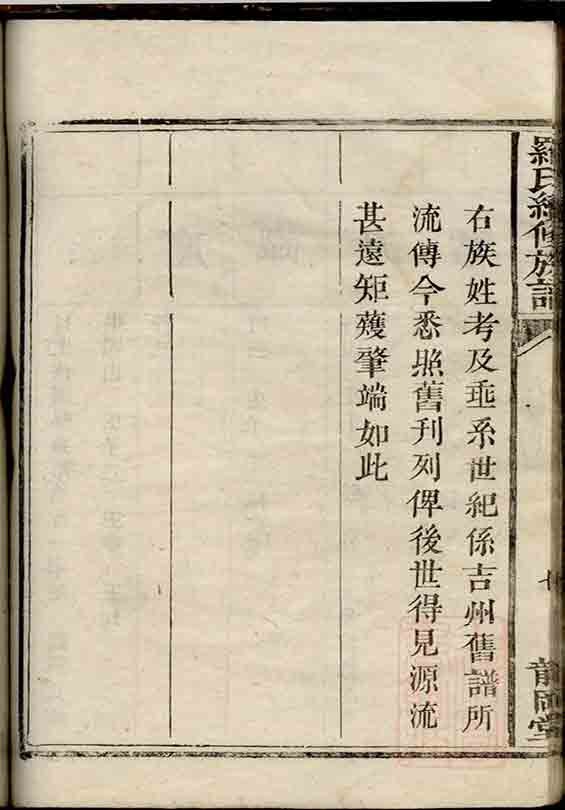 羅氏續修族譜
右族姓考及垂系世紀係吉州舊譜所
流傳今悉照舊刊列俾後世得見源流
甚遠矩矱肇端如此